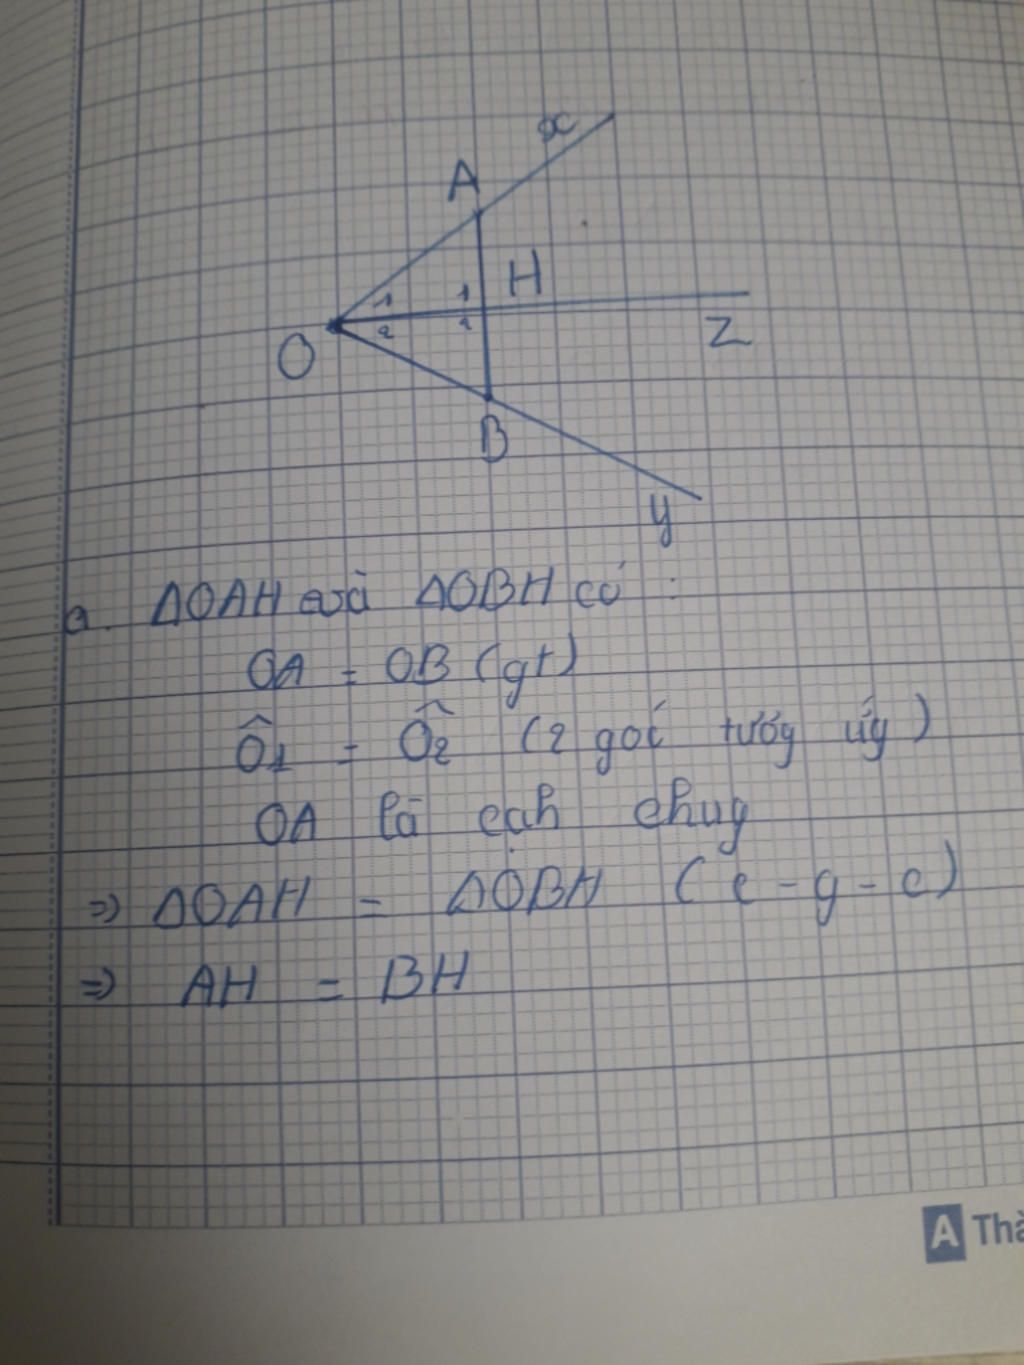 x
A
1 1 H
O 2 2 Z
B
y
a. ΔOAH và ΔOBH có :
OA = OB (gt)
Ô1 = Ô2 (2 góc tướng ứng)
OA là cạh chug
=> ΔOAH = ΔOBH (c - g - c)
=> AH = BH
A Thà